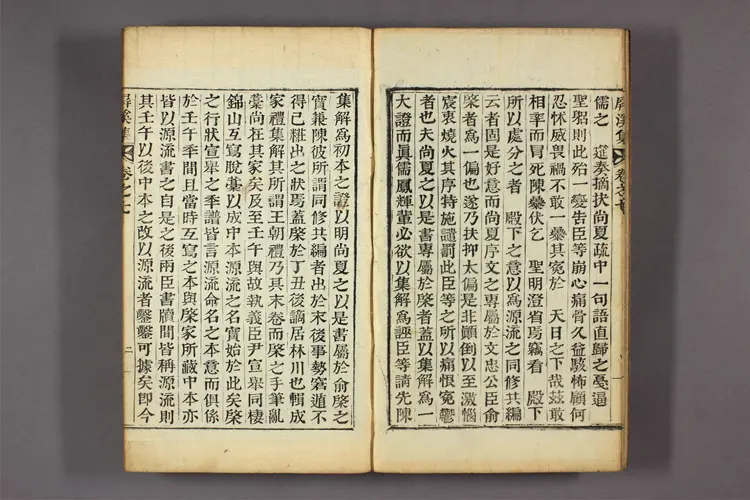 屛溪集 卷之七
儒之 筵奏摘抉尙夏疏中一句語直歸之憂逼
聖躬則此殆一變告臣等崩心痛骨久益駭怖顧何
忍怵威畏禍不敢一㬥其寃於 天日之下哉玆敢
相率而冒死陳㬥伏乞 聖明澄省焉竊看 殿下
所以處分之者 殿下之意以爲源流之同修共編
云者固是好意而尙夏序文之專屬於文忠公臣俞
棨者爲一偏也遂乃扶抑太偏是非顚倒以至激惱
宸衷燒火其序特施譴罰此臣等之所以痛恨寃鬱
者也夫尙夏之以是書專屬於棨者蓋以集解爲一
大證而眞儒鳳輝輩必欲以集解爲誣臣等請先陳
集解爲初本之證以明尙夏之以是書屬於俞棨之
實兼陳彼所謂同修共編者出於末後事勢窘遁不
得已粧出之狀焉蓋棨於丁丑後謫居林川也輯成
家禮集解其所謂王朝禮乃其末卷而棨之手筆亂
藁尙在其家矣及至壬午與故執義臣尹宣擧同棲
錦山互寫脫藁以成中本源流之名實始於此矣棨
之行狀宣擧之季譜皆言源流命名之本意而俱係
於壬午季間且當時互寫之本與棨家所藏中本亦
皆以源流書之自是之後兩臣書牘間皆稱源流則
其壬午以後中本之改以源流者鑿鑿可據矣卽今
屛溪集 卷之七 二